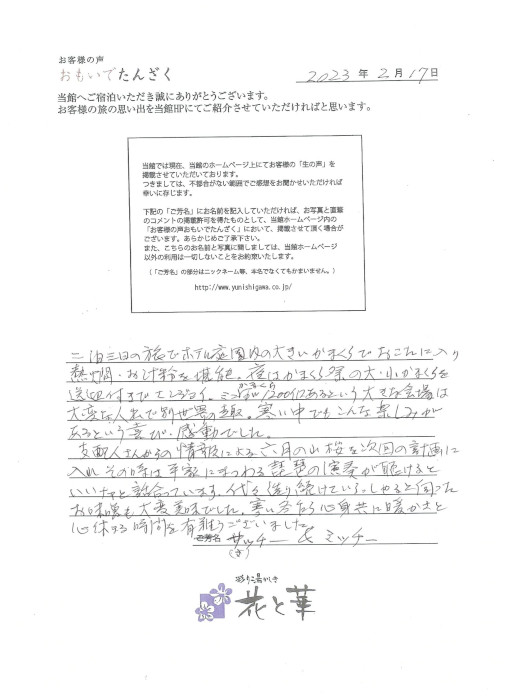 お客様の声
おもいでたんざく
2023年2月17日
当館へご宿泊いただき誠にありがとうございます。
お客様の旅の思い出を当館HPにてご紹介させていただければと思います。
当館では現在、当館のホームページ上にてお客様の「生の声」を
掲載させていただいております。
つきましては、不都合がない範囲でご感想をお聞かせいただければ
幸いに存じます。
下記の「ご芳名」にお名前を記入していただければ、お写真と直筆
のコメントの掲載許可を得たものとして、当館ホームページ内の
「お客様の声おもいでたんざく」において、掲載させて頂く場合が
ございます。あらかじめご了承下さい。
また、こちらのお名前と写真に関しましては、当館ホームページ
以外の利用は一切しないことをお約束いたします。
(「ご芳名」の部分はニックネーム等、本名でなくてもかまいません。)
http://www.yunishigawa.co.jp/
二泊三日の旅でホテル庭園内の大きいかまくらでおこたに入り
熱燗・おしる粉を堪能。夜はかまくら祭の大・小かまくらを
送迎付きでエンジョイ。ミニかまくらが1200個あるという大きな会場は
大変な人出で別世界の趣。寒い中でもこんな楽しみが
あるという喜び・感動でした。
支配人さんからの情報による六月の山桜を次回の計画に
入れその時は平家にまつわる琵琶の演奏が聴けると
いいナァと話合っています。代々造り続けていらっしゃると伺った
お味噌も大変美味でした。寒い冬なら心身共に暖かさと
心休まる時間を有難うございました
ご芳名 サッチー & ミッチー
(さ)
彩り湯かしき
花と華